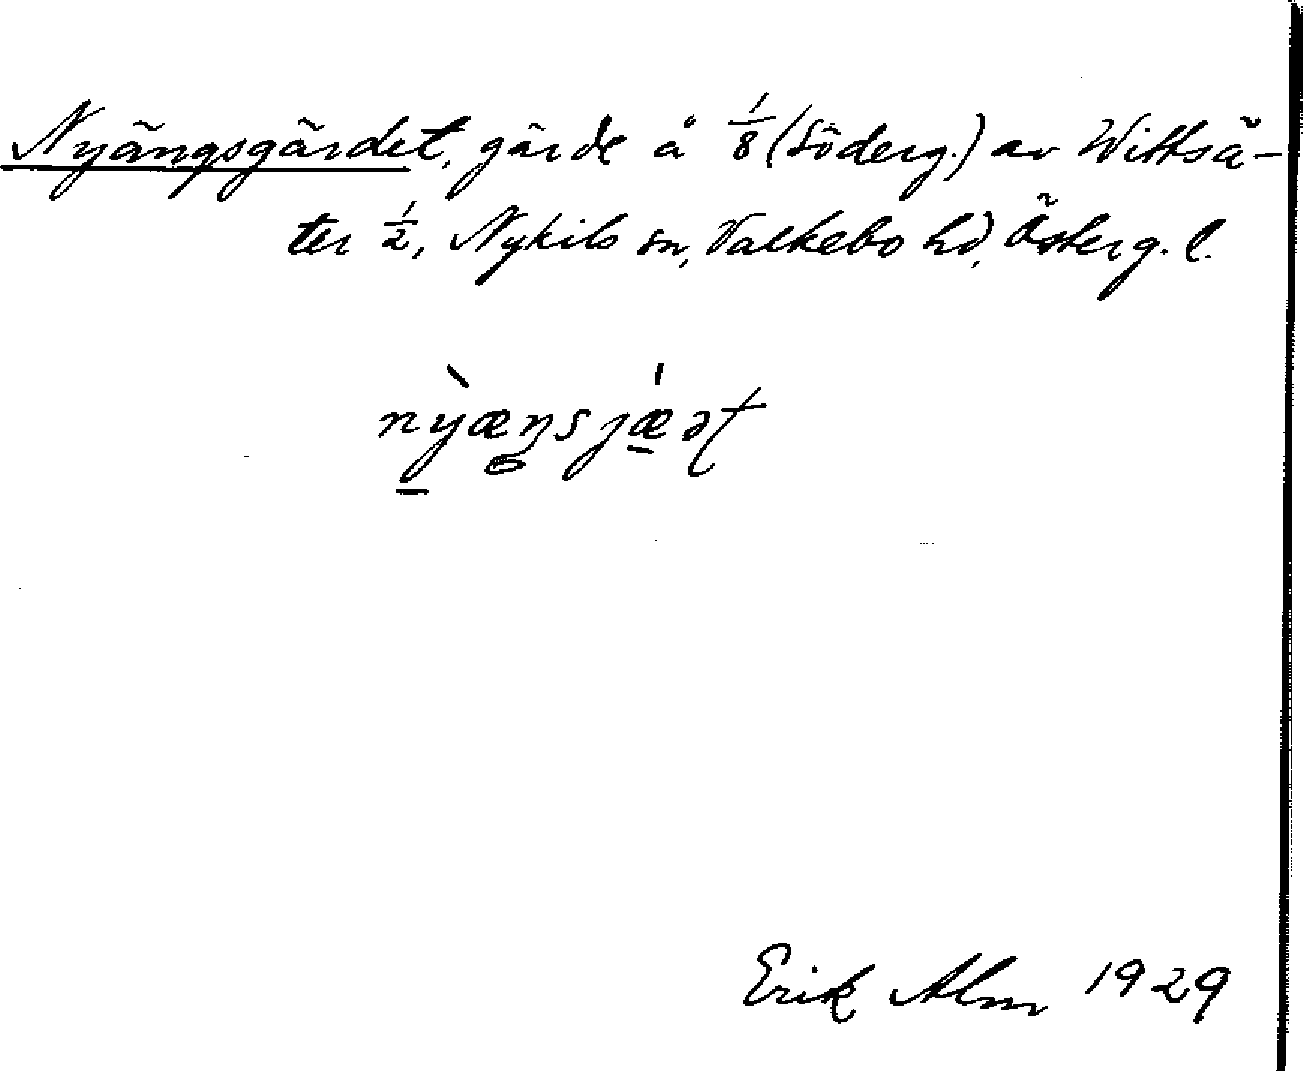 Nyängsgärdet, gärde å 1/8 (Söderg.) av Wittsä-
ter 1/2, Nykils sn, Valkebo hd, Österg. l.
nỳæŋsjǽət
Erik Alm 1929